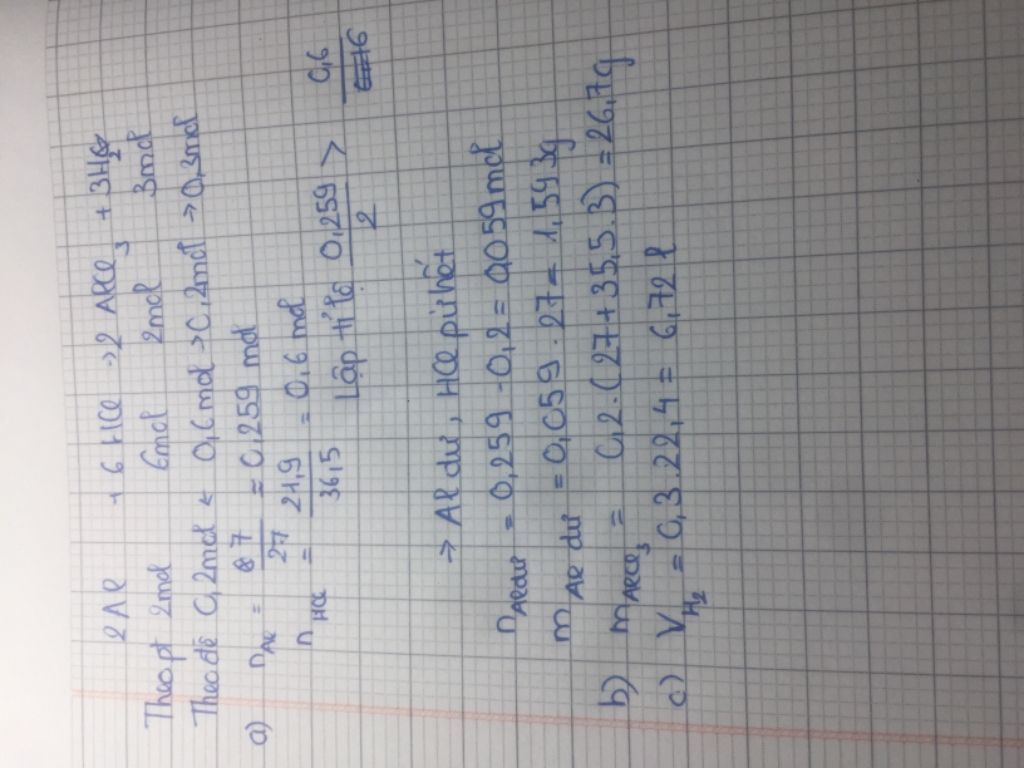 2Al + 6 HCl → 2 AlCl3 + 3H2
Theo pt 2mol 6mol 2mol 3mol
Theo đề 0,2mol ← 0,6 mol → 0,2mol → 0,3mol
a) nAl = 7/27 = 0,259 mol
nHCl = 21,9/36,5 = 0,6 mol
Lập tỉ lệ 0,259/2 > 0,6/6
→ Al dư, HCl p/ư hết
nAl dư = 0,259 - 0,2 = 0,059 mol
mAl dư = 0,059 . 27 = 1,593g
b) mAlCl3 = 0,2 . (27 + 35,5 . 3) = 26,7g
c) VH2 = 0,3 . 22,4 = 6,72 l